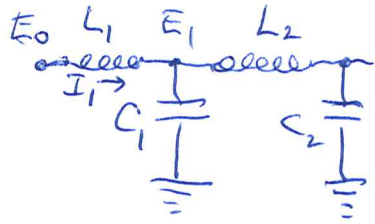 E₀ L₁ E₁ L₂
I₁ →
C₁ C₂